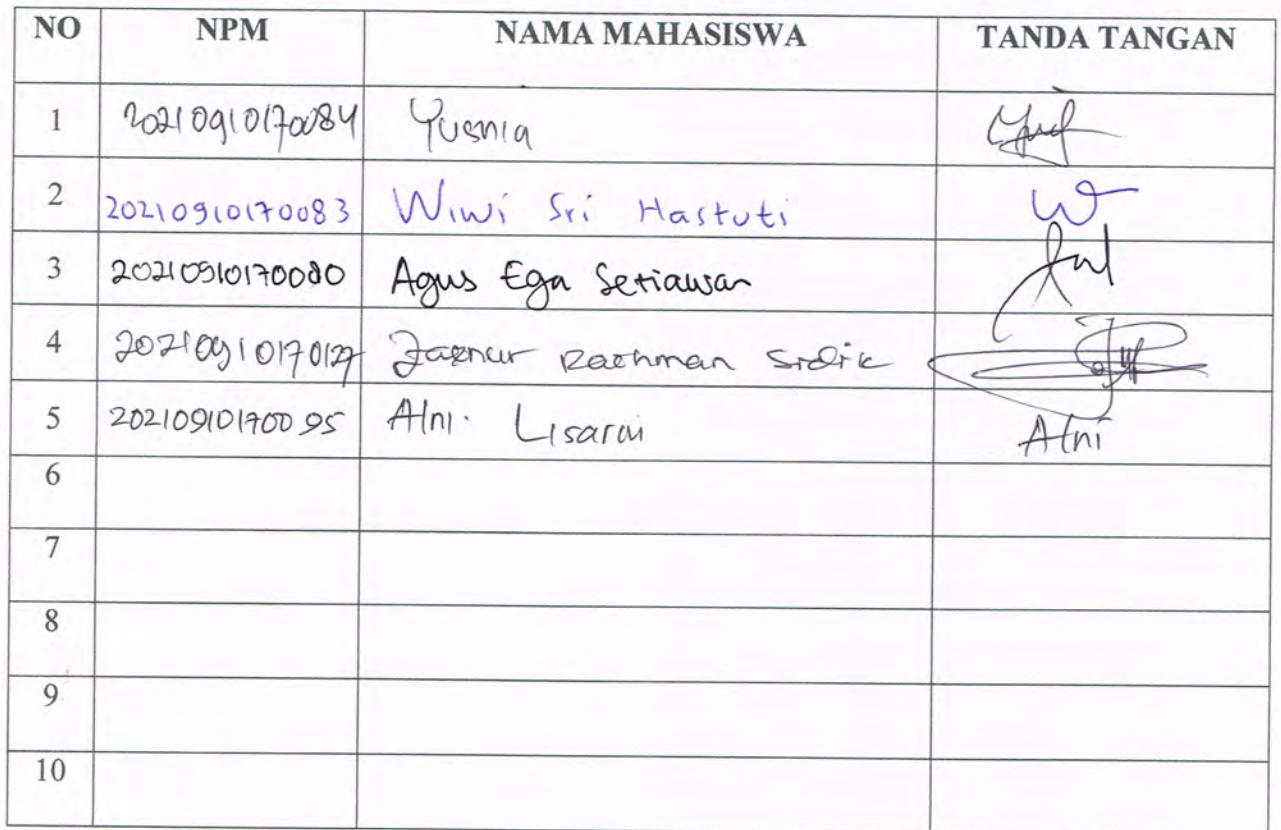 NO NPM NAMA MAHASISWA TANDA TANGAN
1 20210910170084 Yusnia
2 20210910170083 Wiwi Sri Hastuti W
3 20210910170080 Agus Ega Setiawan
4 20210910170127 Rachman Sidik
5 20210910170095 Alni Lisarai Alni
6
7
8
9
10